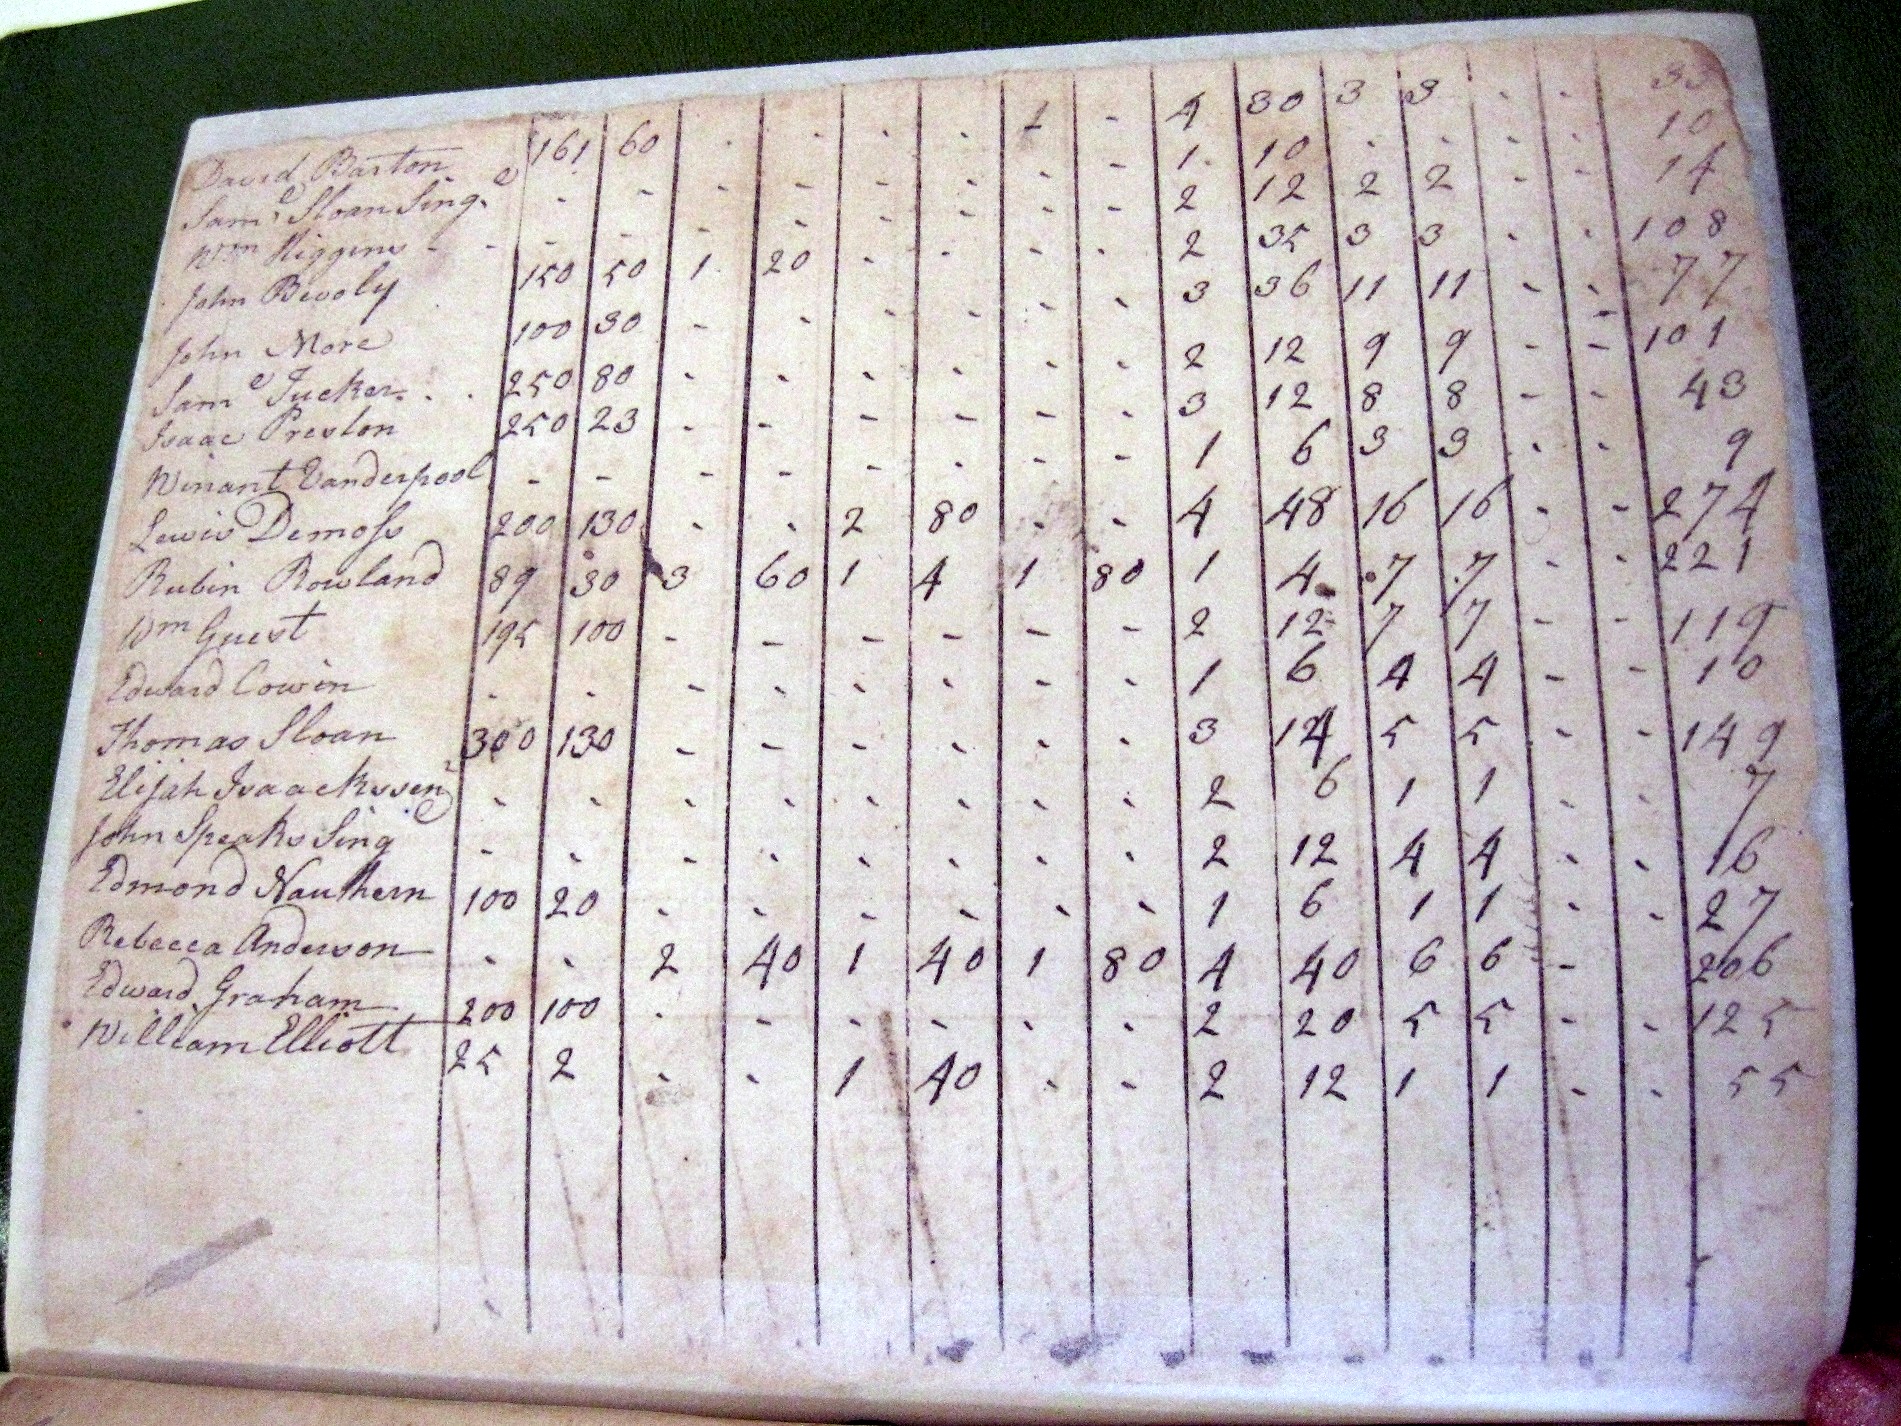 David Barton 161 60 - - - - 1 - 4 30 3 3 - - 33
Saml Sloan Singe - - - - - - - - 1 10 - - - - 10
Wm Higgins - - - - - - - - - 2 12 2 2 - - 14
John Bevoly 150 50 1 20 - - - - 2 35 3 3 - - 108
John More 100 30 - - - - - - 3 36 11 11 - - 77
Saml Tucker 250 80 - - - - - - 2 12 9 9 - - 101
Isaac Preston 250 23 - - - - - - 3 12 8 8 - - 43
Winant Vanderpool - - - - - - - - 1 6 3 3 - - 9
Lewis Demoss 200 130 - - 2 80 - - 4 48 16 16 - - 274
Rubin Rowland 89 30 3 60 1 4 1 80 1 4 7 7 - - 221
Wm Guest 195 100 - - - - - - 2 12 7 7 - - 119
Edward Cowin - - - - - - - - 1 6 4 4 - - 10
Thomas Sloan 300 130 - - - - - - 3 14 5 5 - - 149
Elijah Isaacks senr - - - - - - - - 2 6 1 1 - - 7
John Speaks Singe - - - - - - - - 2 12 4 4 - - 16
Edmond Nauthern 100 20 - - - - - - 1 6 1 1 - - 27
Rebecca Anderson - - 2 40 1 40 1 80 4 40 6 6 - 206
Edward Graham 200 100 - - - - - - 2 20 5 5 - - 125
William Elliott 25 2 - - 1 40 - - 2 12 1 1 - - 55